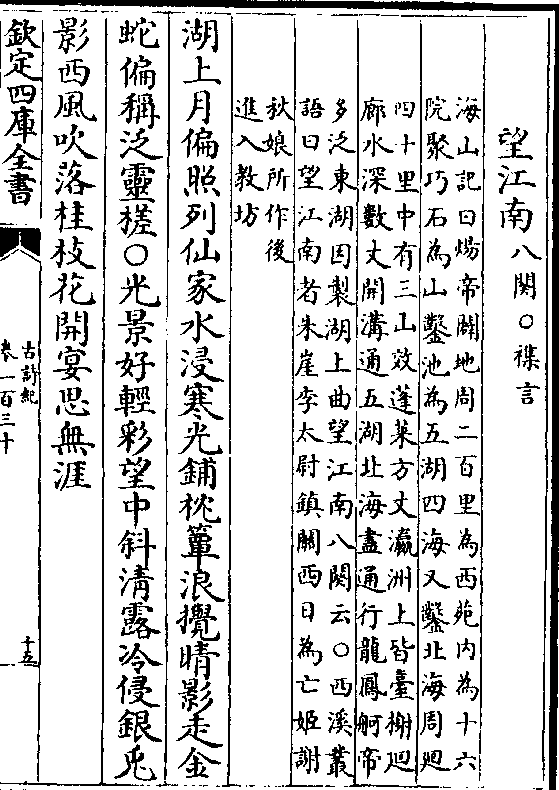 望江南八闋○襍言
海山記曰煬帝闢地周二百里為西苑内為十六
院聚巧石為山鑿池為五湖四海又鑿北海周廻
四十里中有三山效蓬萊方丈瀛洲上皆臺榭廻
廊水深數丈開溝通五湖北海盡通行龍鳳舸帝
多泛東湖因製湖上曲望江南八闋云○西溪叢
語曰望江南者朱崖李太尉鎮關西日為亡姬謝
秋娘所作後
進入教坊
湖上月偏照列仙家水浸寒光鋪枕簟浪攪晴影走金
蛇偏稱泛靈槎○光景好輕彩望中斜清露冷侵銀兎
影西風吹落桂枝花開宴思無涯
欽定四庫全書
古詩紀
卷一百三十
十五